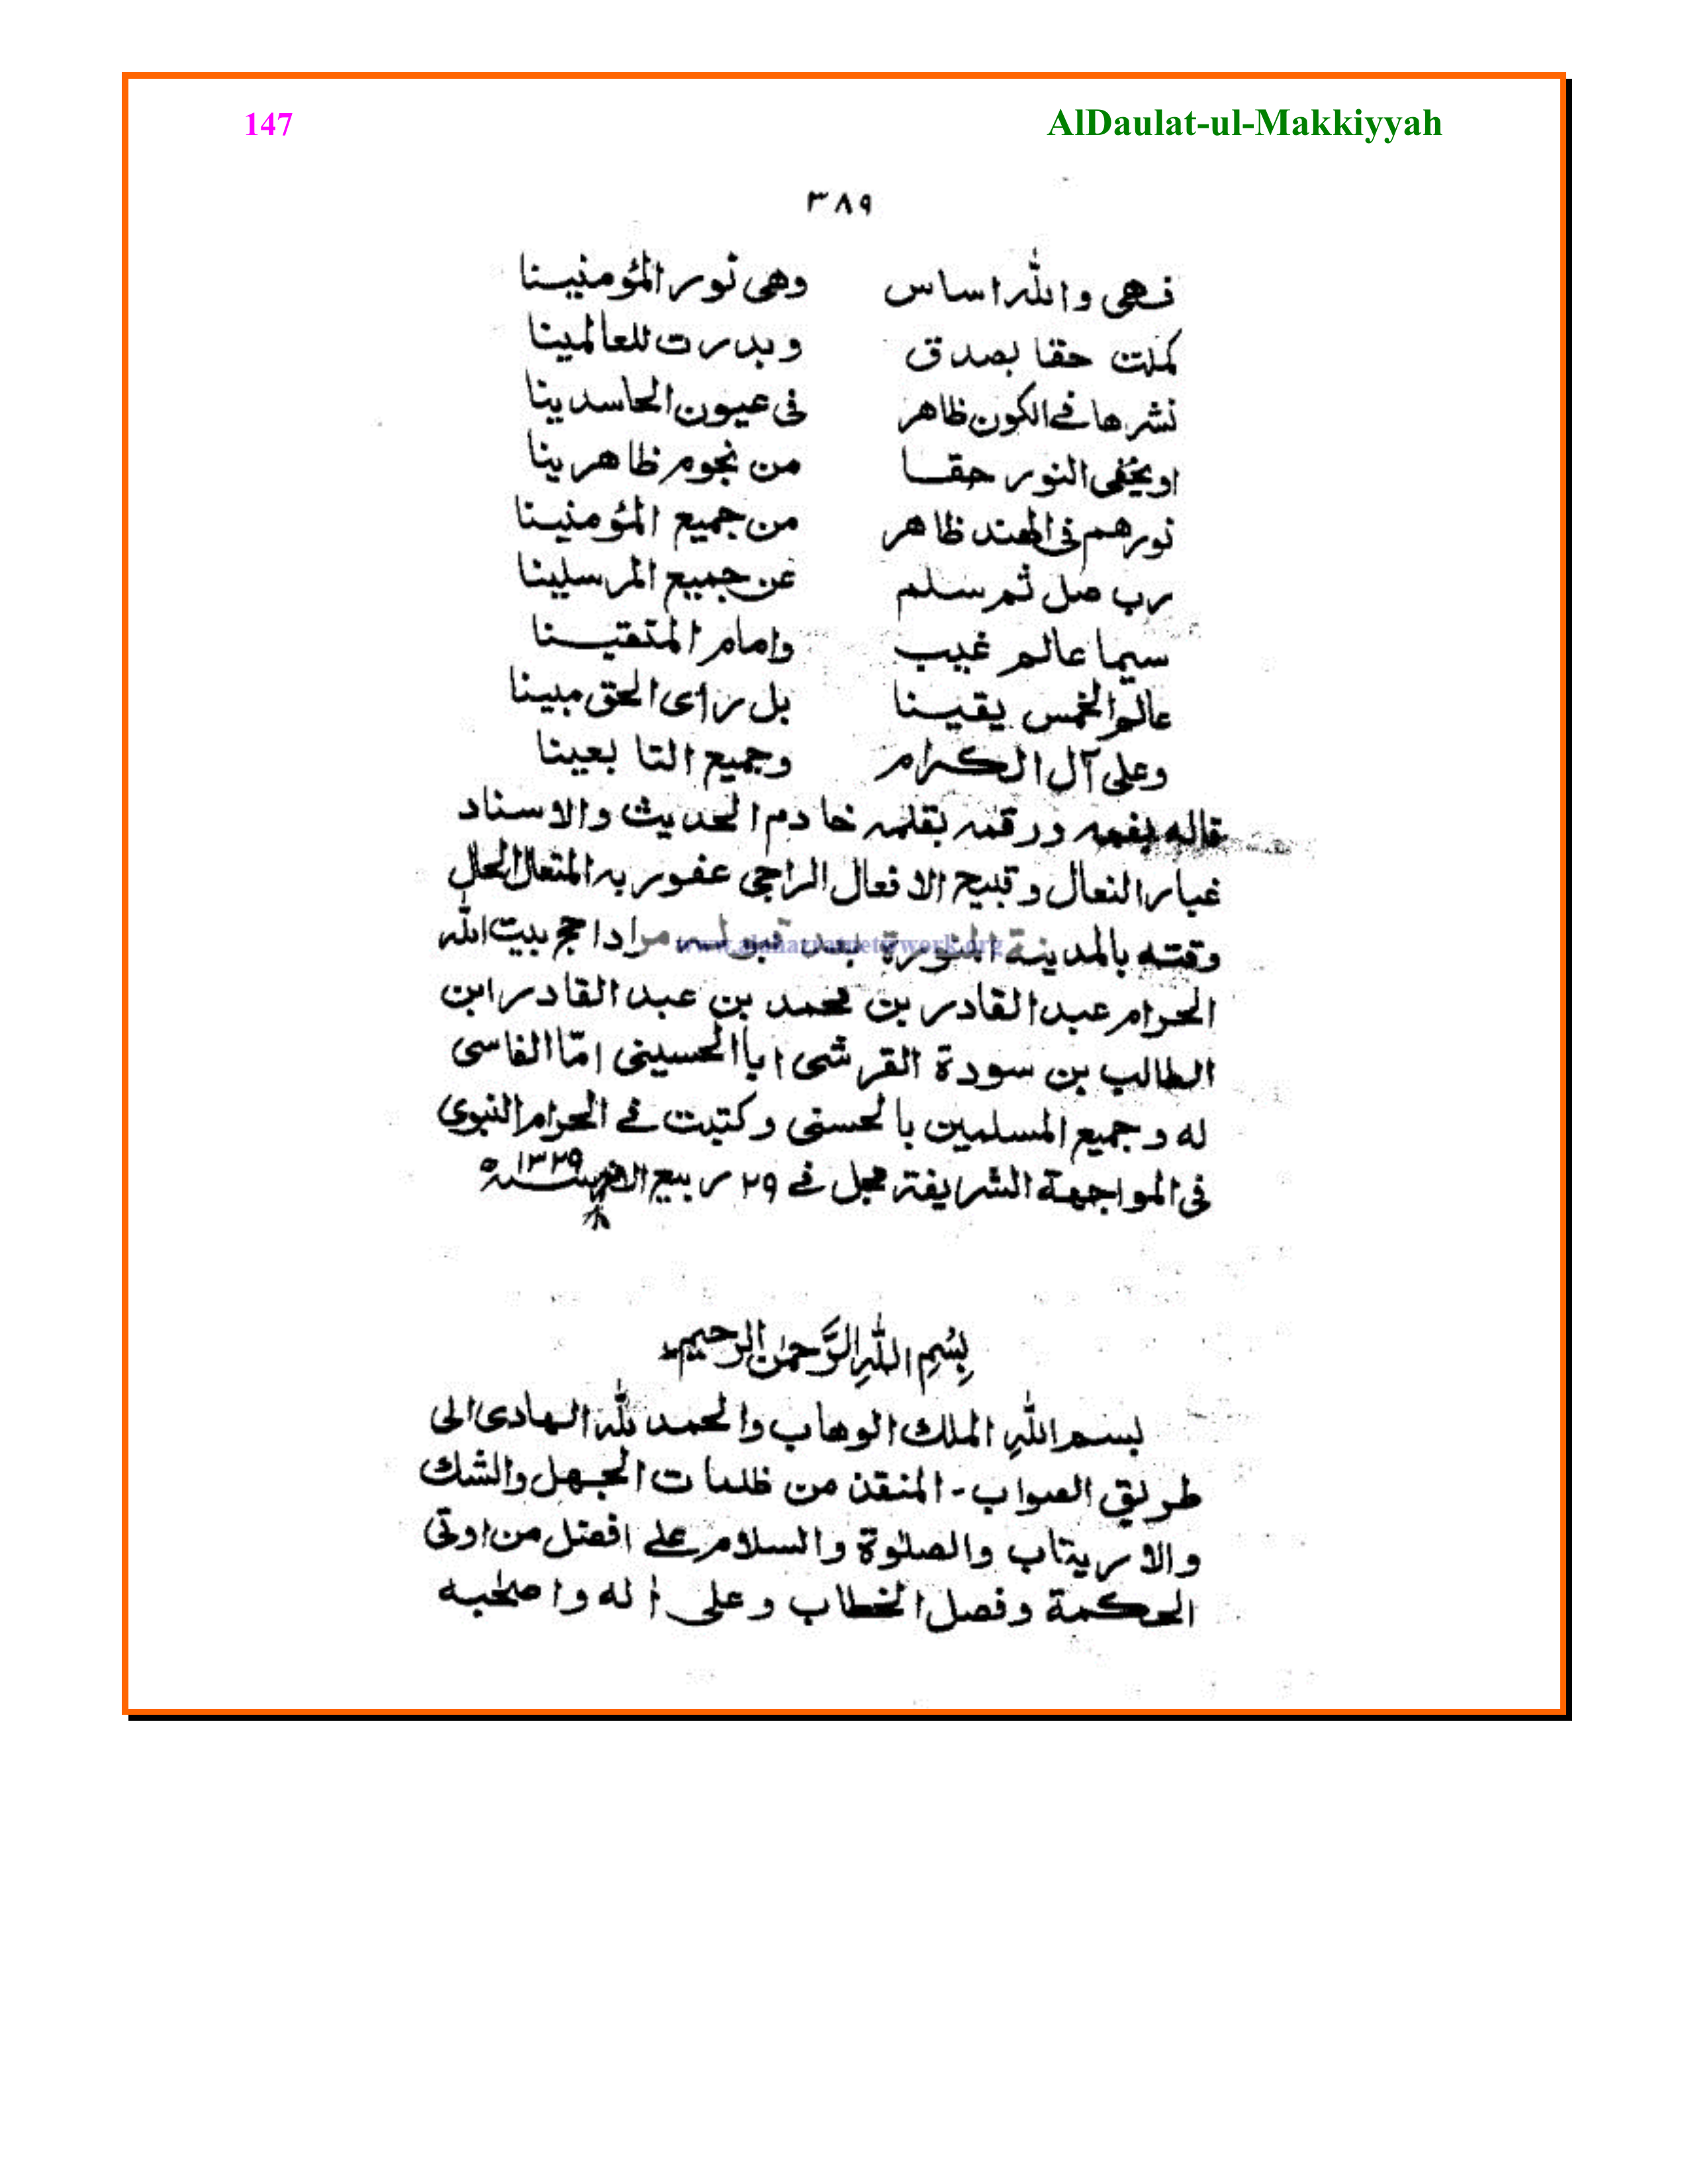 147 AlDaulat-ul-Makkiyyah
٣٨٩
فهى والله اساس وهى نور المؤمنينا
كملت حقا بصدق وبدرت للعالمينا
نشرها فے الكون ظاهر فى عيون الحاسدينا
او يخفى النور حقا من نجوم ظاهرينا
نورهم فى الهند ظاهر من جميع المؤمنينا
رب صل ثم سلم عن جميع المرسلينا
سيما عالم غيب وامام المتقينا
عالم الخمس يقينا بل رأى الحق مبينا
وعلى آل الكرام وجميع التابعينا
قاله بفمه ورقمه بقلمه خادم الحديث والاسناد
غبار النعال وقبيح الافعال الراجى عفو ربه المتعال
وقته بالمدينة المنورة بعد حج بيت الله
الحرام عبد القادر بن محمد بن عبد القادر ابن
الطالب بن سودة القرشى ابا الحسينى امّا الفاسى
له وجميع المسلمين بالحسنى وكتبت فے الحرام النبوى
فى المواجهة الشريفة فے ٢٩ ربيع سنة ١٣٢٩ ه
بِسْمِ اللهِ الرَّحمٰن الرحيم
بسم اللهِ الملك الوهاب والحمد لله الهادى الى
طريق الصواب - المنقذ من ظلمات الجهل والشك
والارتياب والصلوة والسلام علے افضل من اوتى
الحكمة وفصل الخطاب وعلى اٰله واصحٰبه
www.alahazratnetwork.org